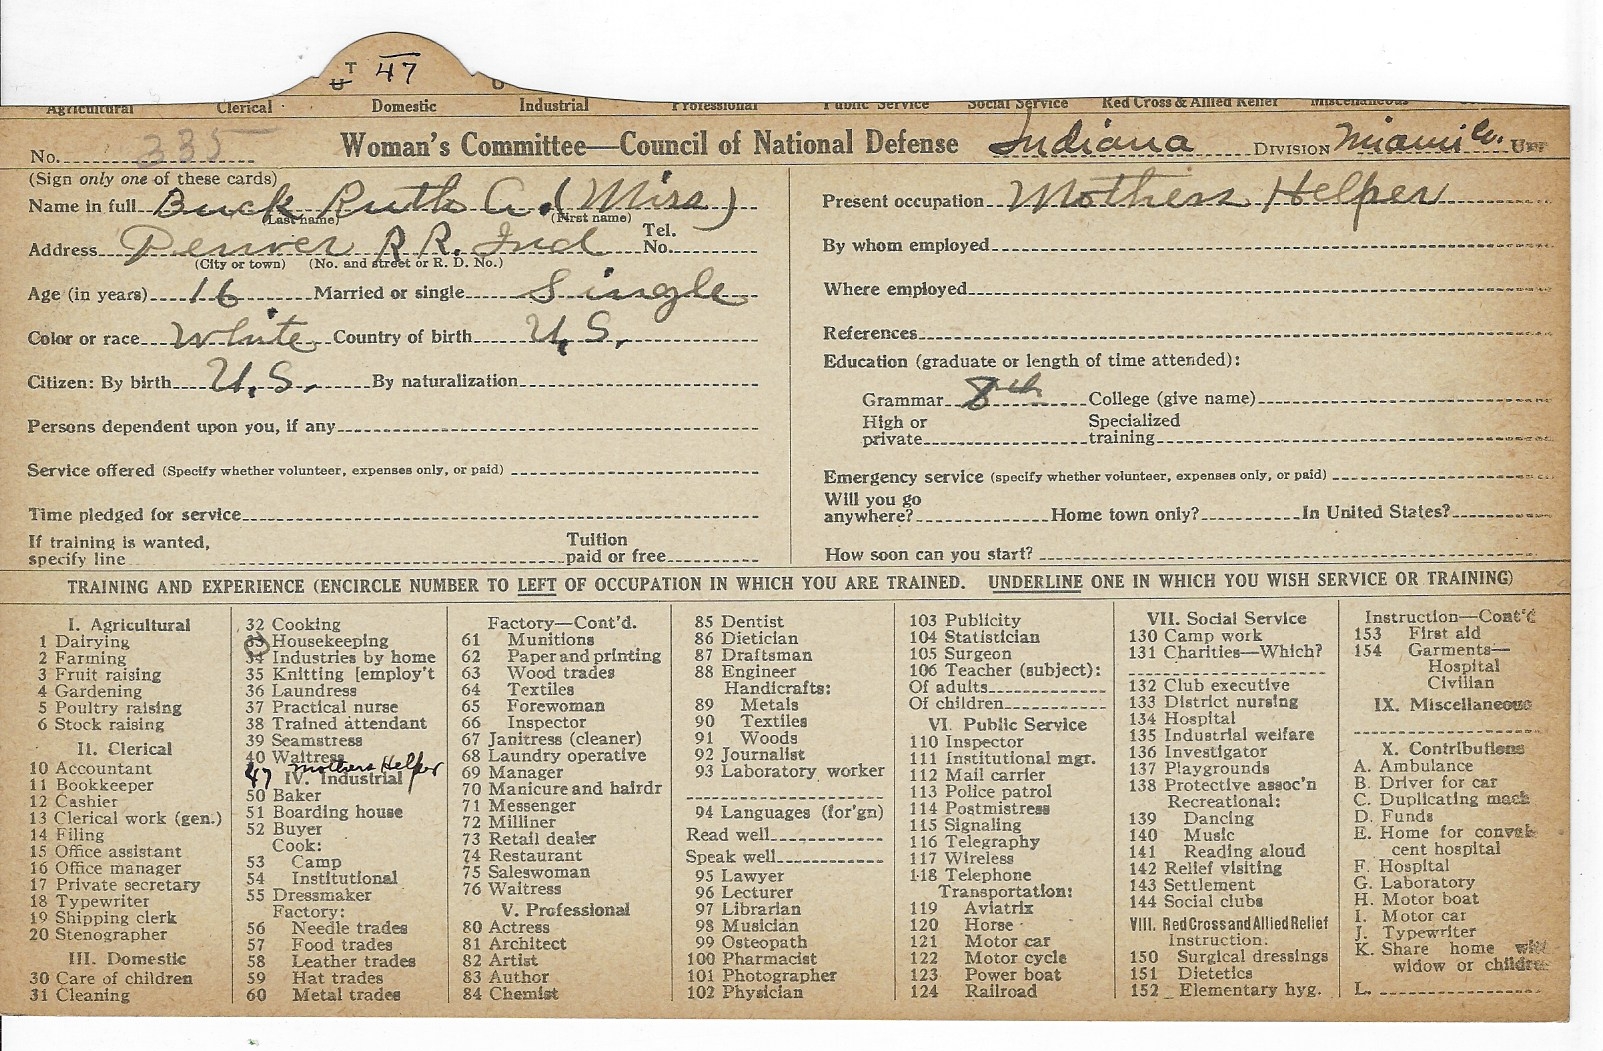 T 47
U
Agricultural Clerical Domestic Industrial Professional Public Service Social Service Red Cross & Allied Relief Miscellaneous
No. 335 Woman's Committee—Council of National Defense Indiana DIVISION Miami Co.
(Sign only one of these cards)
Name in full Buck Ruth A. (Miss)
(Last name) (First name)
Address Denver R R. Ind Tel. No.
(City or town) (No. and street or R. D. No.)
Age (in years) 16 Married or single Single
Color or race White Country of birth U.S.
Citizen: By birth U.S. By naturalization
Persons dependent upon you, if any
Service offered (Specify whether volunteer, expenses only, or paid)
Time pledged for service
If training is wanted, specify line Tuition paid or free
Present occupation Mothers Helper
By whom employed
Where employed
References
Education (graduate or length of time attended):
Grammar 8th College (give name)
High or private Specialized training
Emergency service (specify whether volunteer, expenses only, or paid)
Will you go anywhere? Home town only? In United States?
How soon can you start?
TRAINING AND EXPERIENCE (ENCIRCLE NUMBER TO LEFT OF OCCUPATION IN WHICH YOU ARE TRAINED. UNDERLINE ONE IN WHICH YOU WISH SERVICE OR TRAINING)
I. Agricultural
1 Dairying
2 Farming
3 Fruit raising
4 Gardening
5 Poultry raising
6 Stock raising
II. Clerical
10 Accountant
11 Bookkeeper
12 Cashier
13 Clerical work (gen.)
14 Filing
15 Office assistant
16 Office manager
17 Private secretary
18 Typewriter
19 Shipping clerk
20 Stenographer
III. Domestic
30 Care of children
31 Cleaning
32 Cooking
33 Housekeeping
34 Industries by home
35 Knitting [employ't
36 Laundress
37 Practical nurse
38 Trained attendant
39 Seamstress
40 Waitress
47 Mothers Helper
IV. Industrial
50 Baker
51 Boarding house
52 Buyer
Cook:
53 Camp
54 Institutional
55 Dressmaker
Factory:
56 Needle trades
57 Food trades
58 Leather trades
59 Hat trades
60 Metal trades
Factory—Cont'd.
61 Munitions
62 Paper and printing
63 Wood trades
64 Textiles
65 Forewoman
66 Inspector
67 Janitress (cleaner)
68 Laundry operative
69 Manager
70 Manicure and hairdr
71 Messenger
72 Milliner
73 Retail dealer
74 Restaurant
75 Saleswoman
76 Waitress
V. Professional
80 Actress
81 Architect
82 Artist
83 Author
84 Chemist
85 Dentist
86 Dietician
87 Draftsman
88 Engineer
Handicrafts:
89 Metals
90 Textiles
91 Woods
92 Journalist
93 Laboratory worker
94 Languages (for'gn)
Read well
Speak well
95 Lawyer
96 Lecturer
97 Librarian
98 Musician
99 Osteopath
100 Pharmacist
101 Photographer
102 Physician
103 Publicity
104 Statistician
105 Surgeon
106 Teacher (subject):
Of adults
Of children
VI. Public Service
110 Inspector
111 Institutional mgr.
112 Mail carrier
113 Police patrol
114 Postmistress
115 Signaling
116 Telegraphy
117 Wireless
118 Telephone
Transportation:
119 Aviatrix
120 Horse
121 Motor car
122 Motor cycle
123 Power boat
124 Railroad
VII. Social Service
130 Camp work
131 Charities—Which?
132 Club executive
133 District nursing
134 Hospital
135 Industrial welfare
136 Investigator
137 Playgrounds
138 Protective assoc'n
Recreational:
139 Dancing
140 Music
141 Reading aloud
142 Relief visiting
143 Settlement
144 Social clubs
VIII. Red Cross and Allied Relief
Instruction:
150 Surgical dressings
151 Dietetics
152 Elementary hyg.
Instruction—Cont'd
153 First aid
154 Garments—
Hospital
Civilian
IX. Miscellaneous
X. Contributions
A. Ambulance
B. Driver for car
C. Duplicating mach
D. Funds
E. Home for conval-
cent hospital
F. Hospital
G. Laboratory
H. Motor boat
I. Motor car
J. Typewriter
K. Share home with
widow or children
L.